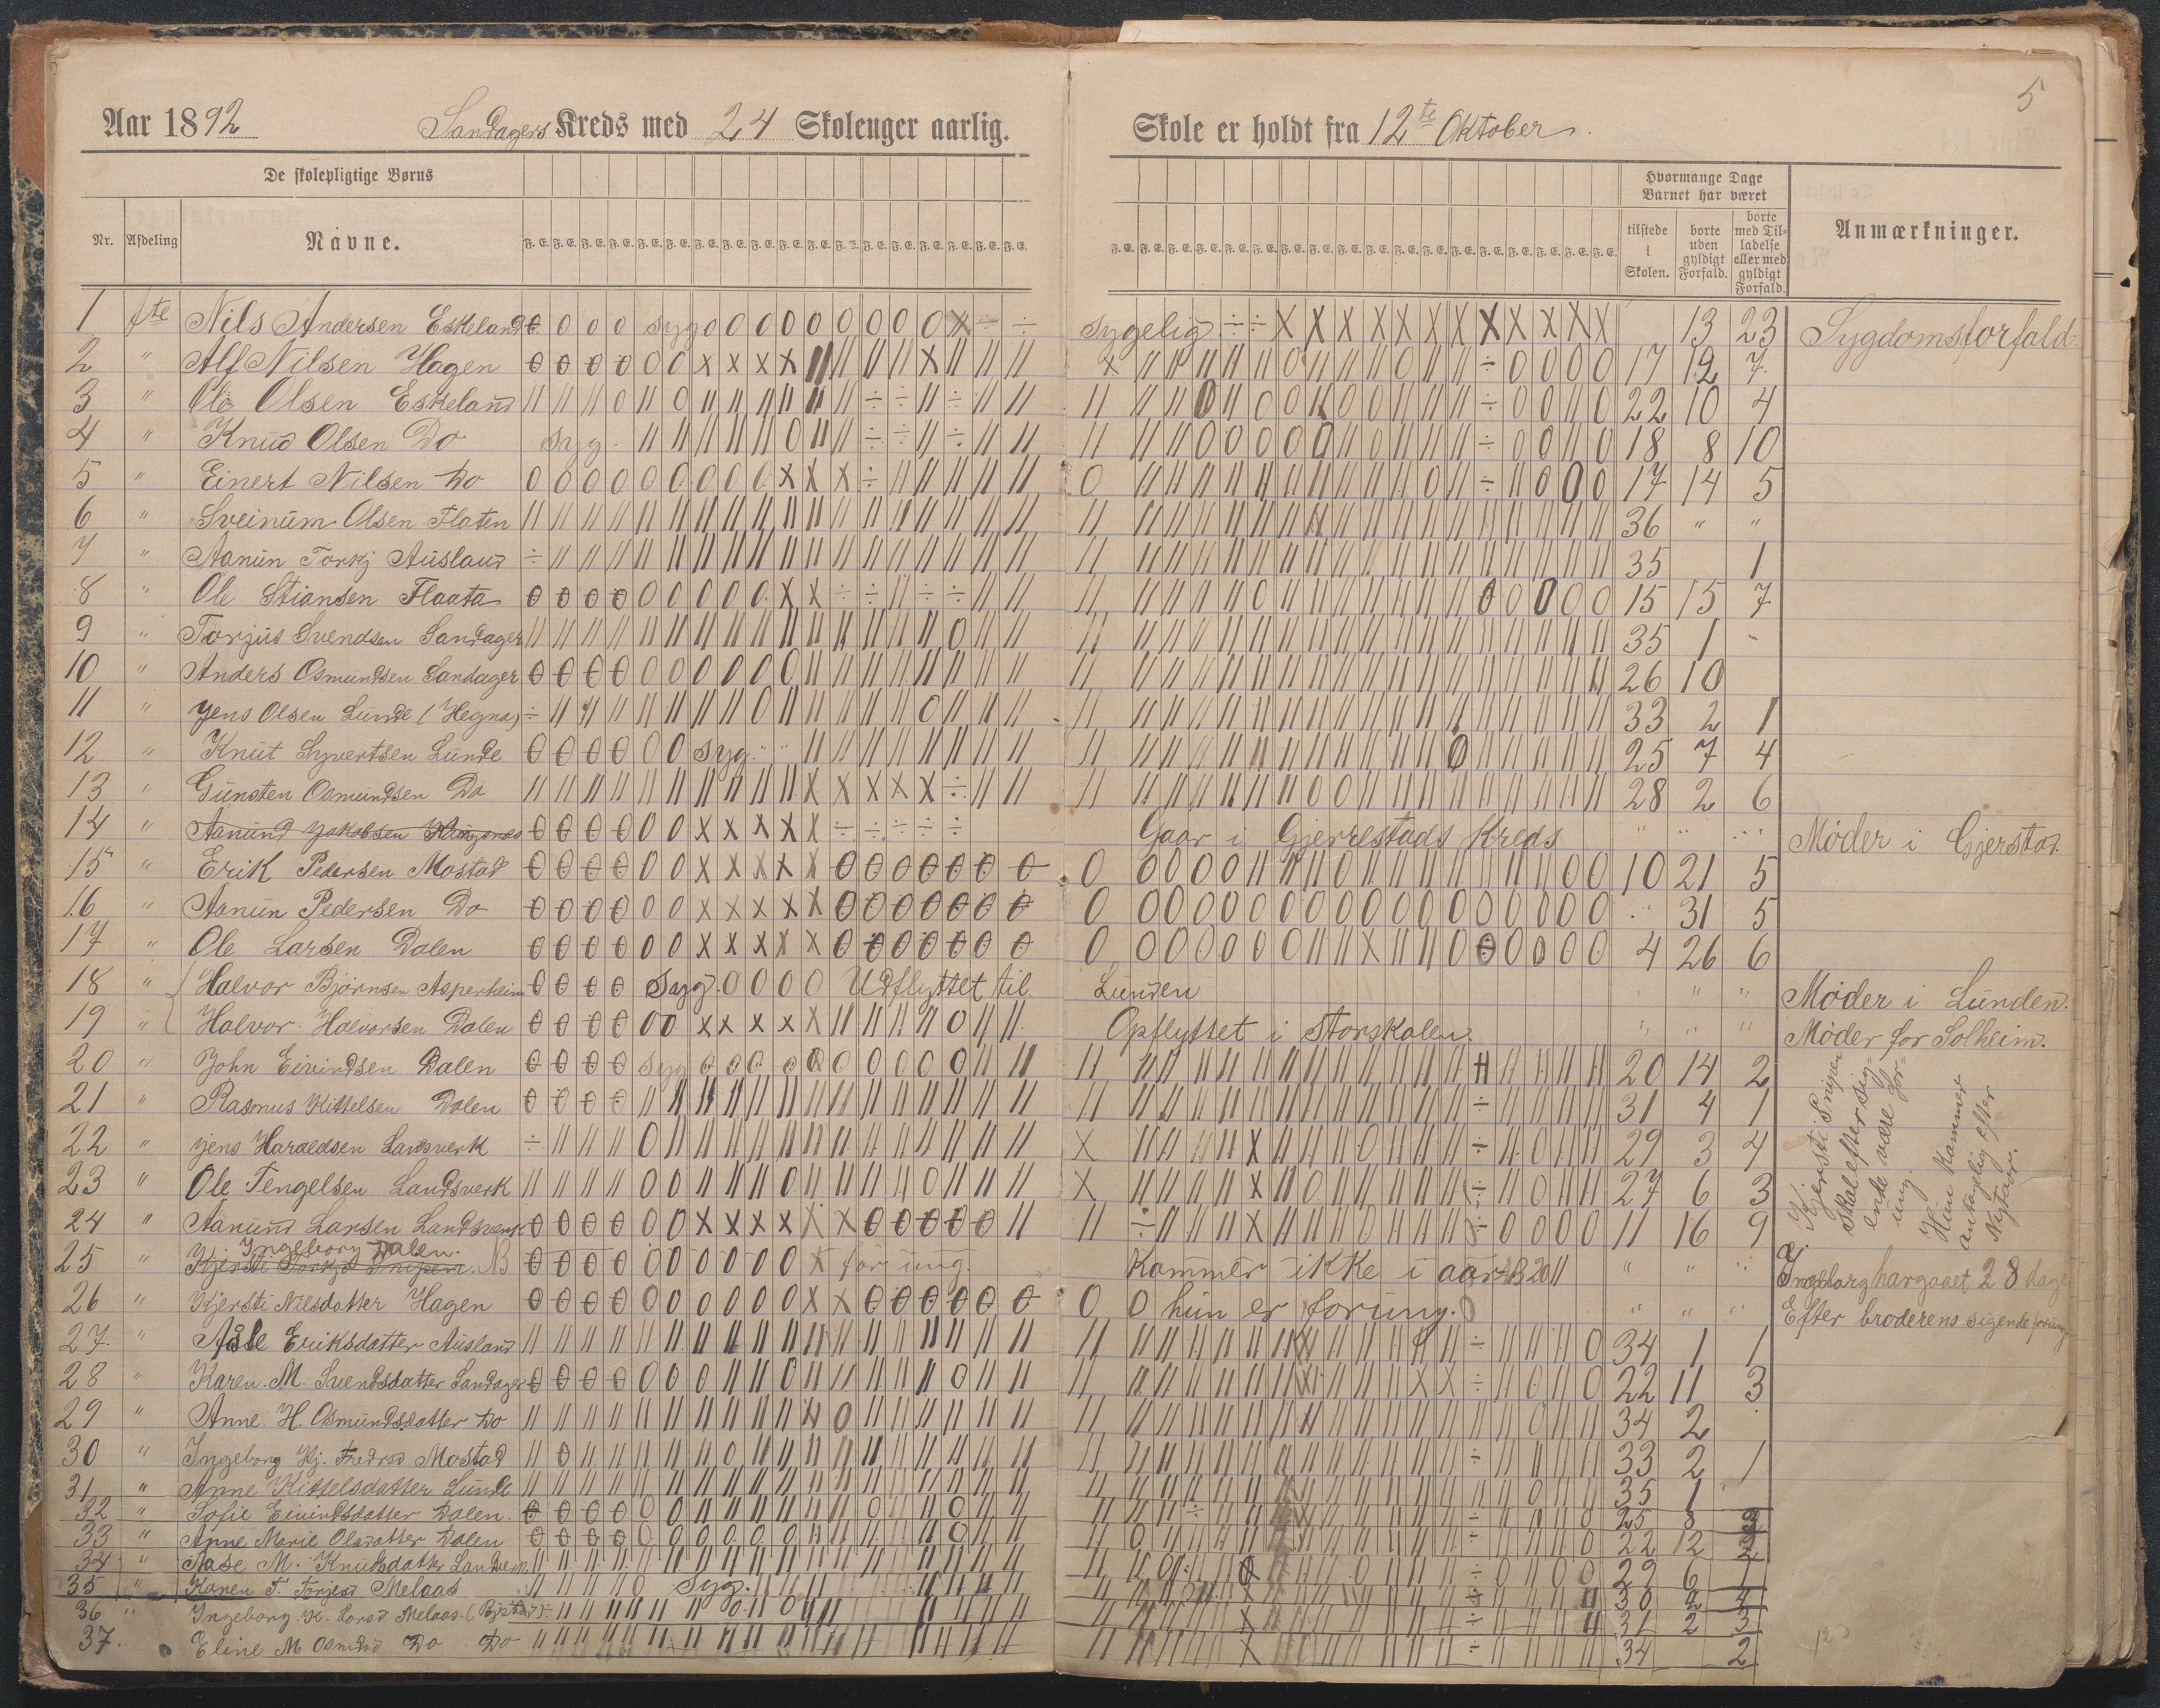 5
Aar 1892 Sandagers Kreds med 24 Skoleuger aarlig. Skole er holdt fra 12te Oktober.
De skolepligtige Børns
Hvormange Dage Barnet har været
Nr. Afdeling Navne. F. E. tilstede i Skolen. borte uden gyldigt Forfald. borte med Tilladelse eller med gyldigt Forfald. Anmærkninger.
1 1ste Nils Andersen Eskeland syg sygelig 13 23 Sygdomsforfald.
2 " Alf Nilsen Hagen 17 12 7
3 " Ole Olsen Eskeland 22 10 4
4 " Knud Olsen Do syg. 18 8 10
5 " Einert Nilsen Do 17 14 5
6 " Sveinüm Olsen Flaten 36 " "
7 " Aanün Torkj Ausland 35 1
8 " Ole Stiansen Flaata 15 15 7
9 " Torjüs Svendsen Sandager 35 1 "
10 " Anders Osmundsen Sandager 26 10
11 " Jens Olsen Lunde (Hegna) 33 2 1
12 " Knüt Syvertsen Lünde syg. " " 25 7 4
13 " Günsten Osmundsen Do 28 2 6
14 " Aanünd Jakobsen Gaar i Gjerrestads Kreds " " " Møder i Gjerstad
15 " Erik Pedersen Mostad 10 21 5
16 " Aanün Pedersen Do " 31 5
17 " Ole Larsen Dalen 4 26 6
18 " Halvor Bjørnsen Asperheim Syg. Udflyttet til Lunden " " Møder i Lünden.
19 " Halvor Halvorsen Dalen Opflyttet i Storskolen. " " " Møder for Solheim.
20 " John Eivindsen Dalen syg 20 14 2
21 " Rasmus Kittelsen Dalen 31 4 1
22 " Jens Haraldsen Landsverk 29 3 4
23 " Ole Tengelsen Landsverk 27 6 3
24 " Aanund Larsen Landsverk 11 16 9
Kjersti Snipen skal efter sigende være for ung. Hun kommer antagelig efter Nytaar.
Ingeborg Dalen.
25 " Kjersti Torkjd Snipen. NB for ung. Kommer ikke i aar " " " Ingeborg har gaaet 28 dage
26 " Kjersti Nilsdatter Hagen hun er for ung. " " " Efter broderens sigende for ung
27. " Åsle Eriksdatter Ausland 34 1 1
28 " Karen. M. Svendsdatter Sandager 22 11 3
29 " Anne. H. Osmundsdatter Do 34 2
30 " Ingeborg Kj. Fredrsd Mostad 33 2 1
31 " Anne Kittelsdatter Lunde 35 1
32 " Sofie Eivindsdatter Dalen. 25 8 3
33 " Anne Marie Olsdatter Dalen 22 12 2
34 " Aase M. Knudsdatter 29 6 1
35 " Karen T. Torjesd Melaas Syg. 30 2 4
36 " Ingeborg. K. Larsd Melaas. 31 2 3
37. Eline M Osmdsd Do Do 34 2